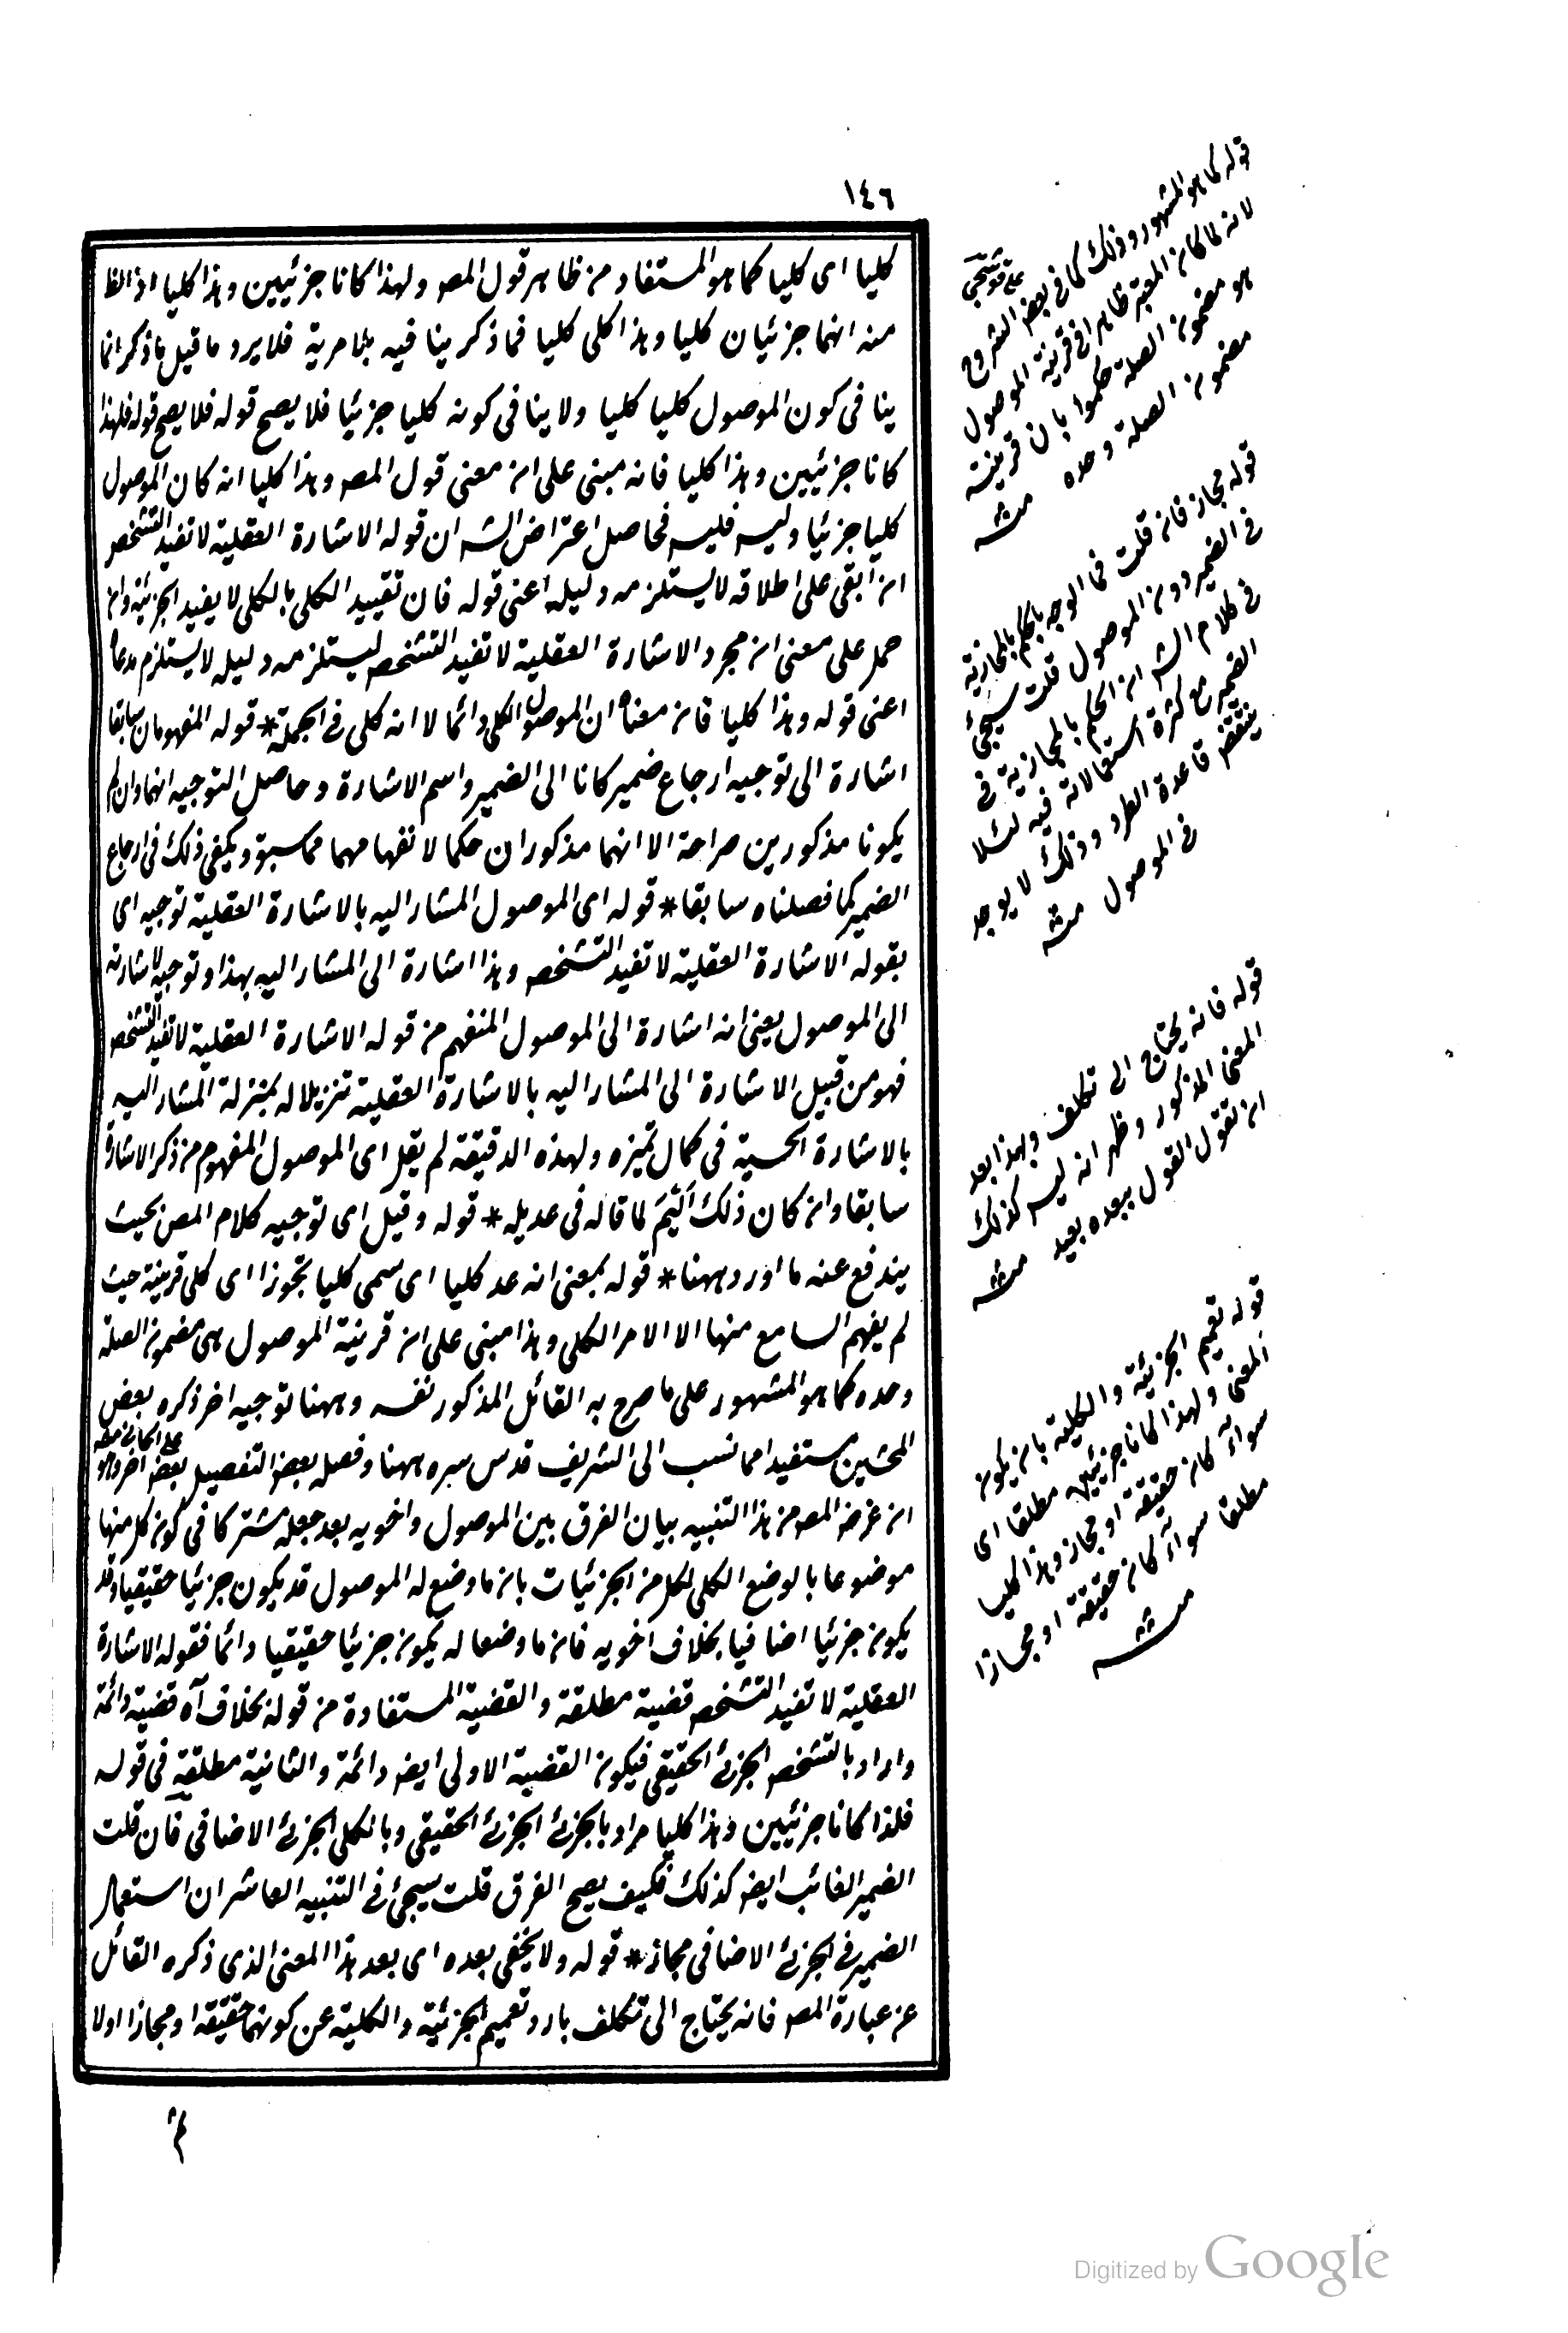 ١٤٦
كليا اى كليا كما هو المستفاد من ظاهر قول المصـ ولهذا كانا جزئيين وهذا كليا اذ الظا
منه انهما جزئيان كليا وهذا كلى كليا فما ذكر ينافيه بلا مرية فلا يرد ما قيل ما ذكر انما
ينافى كون الموصول كليا كليا ولا ينافى كونه كليا جزئيا فلا يصح قوله فلا يصح قوله فلهذا
كانا جزئيين وهذا كليا فانه مبنى على ان معنى قول المصـ وهذا كليا انه كان الموصول
كليا جزئيا وليس فليس فحاصل اعتراض الشـ ان قوله الاشارة العقلية لا تفيد التشخص
ان ابقى على اطلاقه لا يستلزمه دليله اعنى قوله فان تقييد الكلى بالكلى لا يفيد الجزئية وان
حمل على معنى ان مجرد الاشارة العقلية لا تفيد التشخص ليستلزمه دليله لا يستلزم مدعاه
اعنى قوله وهذا كليا فان معناه ان الموصول الكلى دائما لا انه كلى فى الجملة * قوله المفهومان سابقا
اشارة الى توجيه ارجاع ضمير كانا الى الضمير واسم الاشارة وحاصل التوجيه انهما وان لم
يكونا مذكورين صراحة الا انهما مذكوران حكما لانفهامهما مما سبق ويكفى ذلك فى ارجاع
الضمير كما فصلناه سابقا * قوله اى الموصول المشار اليه بالاشارة العقلية توجيه اى
بقوله الاشارة العقلية لا تفيد التشخص وهذا اشارة الى المشار اليه بهذا وتوجيه لاشارته
الى الموصول يعنى انه اشارة الى الموصول المنفهم من قوله الاشارة العقلية لا تفيد التشخص
فهو من قبيل الاشارة الى المشار اليه بالاشارة العقلية تنزيلا له بمنزلة المشار اليه
بالاشارة الحسية فى كمال تميزه ولهذه الدقيقة لم يقل اى الموصول المفهوم من ذكر الاشارة
سابقا وان كان ذلك اَلْيَمَ لما قاله فى عديله * قوله وقيل اى توجيه كلام المصـ بحيث
يندفع عنه ما اورد ههنا * قوله بمعنى انه عد كليا اى سمى كليا تجوزا اى كلى قرينية حيث
لم يفهم السامع منها الا الامر الكلى وهذا مبنى على ان قرينة الموصول هى مضمون الصلة
وحده كما هو المشهور على ما صرح به القائل المذكور نفسه وههنا توجيه اخر ذكره بعض
المحشين مستفيدا مما نسب الى الشريف قدس سره ههنا وفصله بعض التفصيل بعض اخر وهو
ان غرض المصـ من هذا التنبيه بيان الفرق بين الموصول واخويه بعد جعله مشتركا فى كون كل منها
موضوعا بالوضع الكلى لكل من الجزئيات بان ما وضع له الموصول قد يكون جزئيا حقيقيا وقد
يكون جزئيا اضافيا بخلاف اخويه فان ما وضعا له يكون جزئيا حقيقيا دائما فقوله الاشارة
العقلية لا تفيد التشخص قضية مطلقة والقضية المستفادة من قوله بخلاف آه قضية دائمة
واراد بالتشخص الجزئ الحقيقى فيكون القضية الاولى ايضـ دائمة والثانية مطلقة فى قوله
فلذا كانا جزئيين وهذا كليا مراد بالجزئ الجزئ الحقيقى وبالكلى الجزئ الاضافى فان قلت
الضمير الغائب ايضـ كذلك فكيف يصح الفرق قلت سيجئ فى التنبيه العاشر ان استعمال
الضمير فى الجزئ الاضافى مجاز * قوله ولا يخفى بعده اى بعد هذا المعنى الذى ذكره القائل
عن عبارة المصـ فانه يحتاج الى تكلف بارد وتعميم الجزئية والكلية عن كونهما حقيقة او مجازا اولا
قوله كما هو المشهور وذلك كما فى بعض الشروح
لانه لما كان المعتبر ظاهرا فى قرينة الموصول
هو مضمون الصلة حكموا بان قرينته
مضمون الصلة وحده منه
على قوشجى
قوله مجاز فان قلت فما الوجه بالحكم بالمجازية
فى الضمير دون الموصول قلت سيجئ
فى كلام الشـ ان الحكم بالمجازية فى
الضمير مع كثرة استعمالاته فيه لئلا
ينتقض قاعدة الطرد وذلك لا يوجد
فى الموصول منه
قوله فانه يحتاج الى تكلف وبهذا بعد
المعنى المذكور وظهر انه ليس كذلك
ان نقول القول ببعده بعيد منه
قوله تعميم الجزئية والكلية بان يكون
المعنى ولهذا كانا جزئيين مطلقا اى
سواء كان حقيقة او مجاز وهذا كليا
مطلقا سواء كان حقيقة او مجازا
منه
Digitized by Google